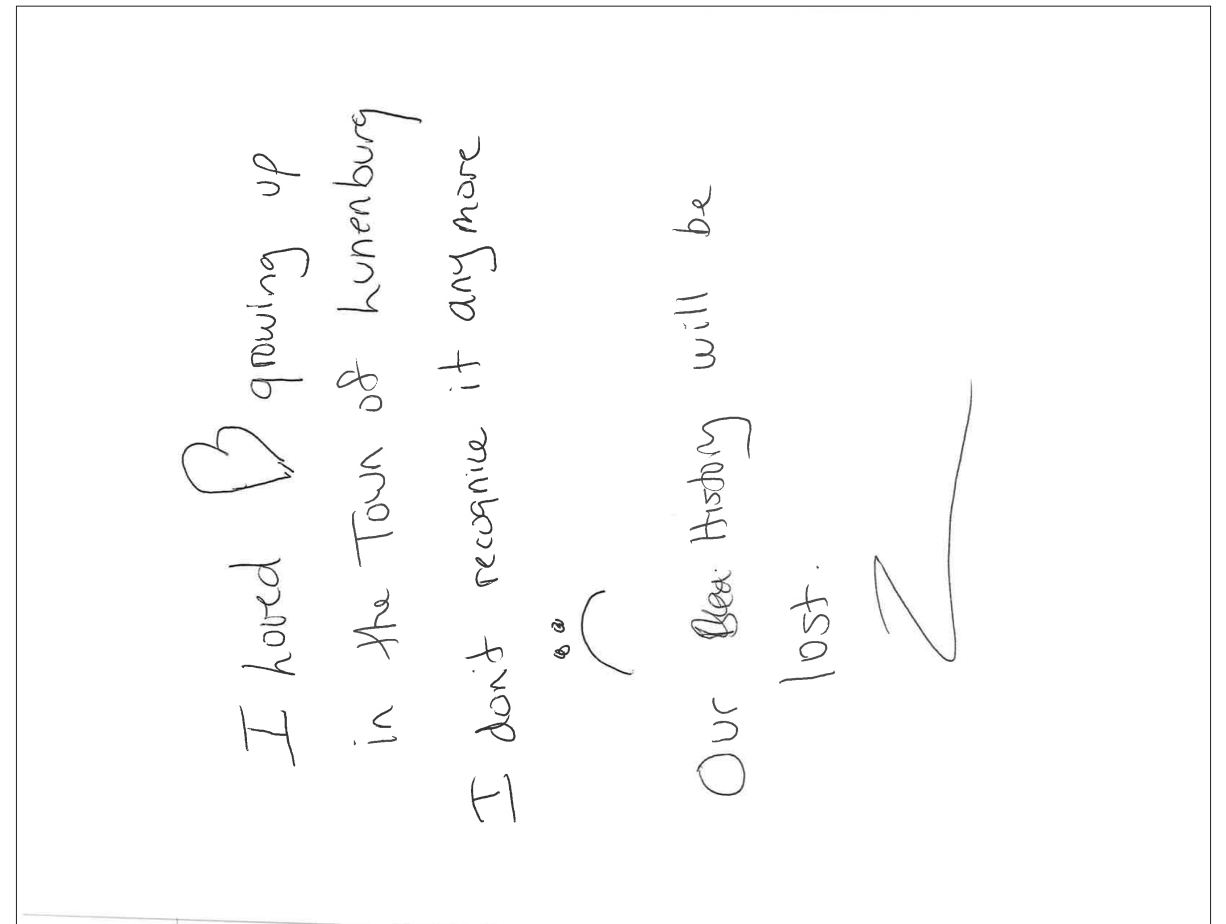 I Loved growing up
in the Town of Lunenburg
I don't recognize it any more
Our History will be
lost.